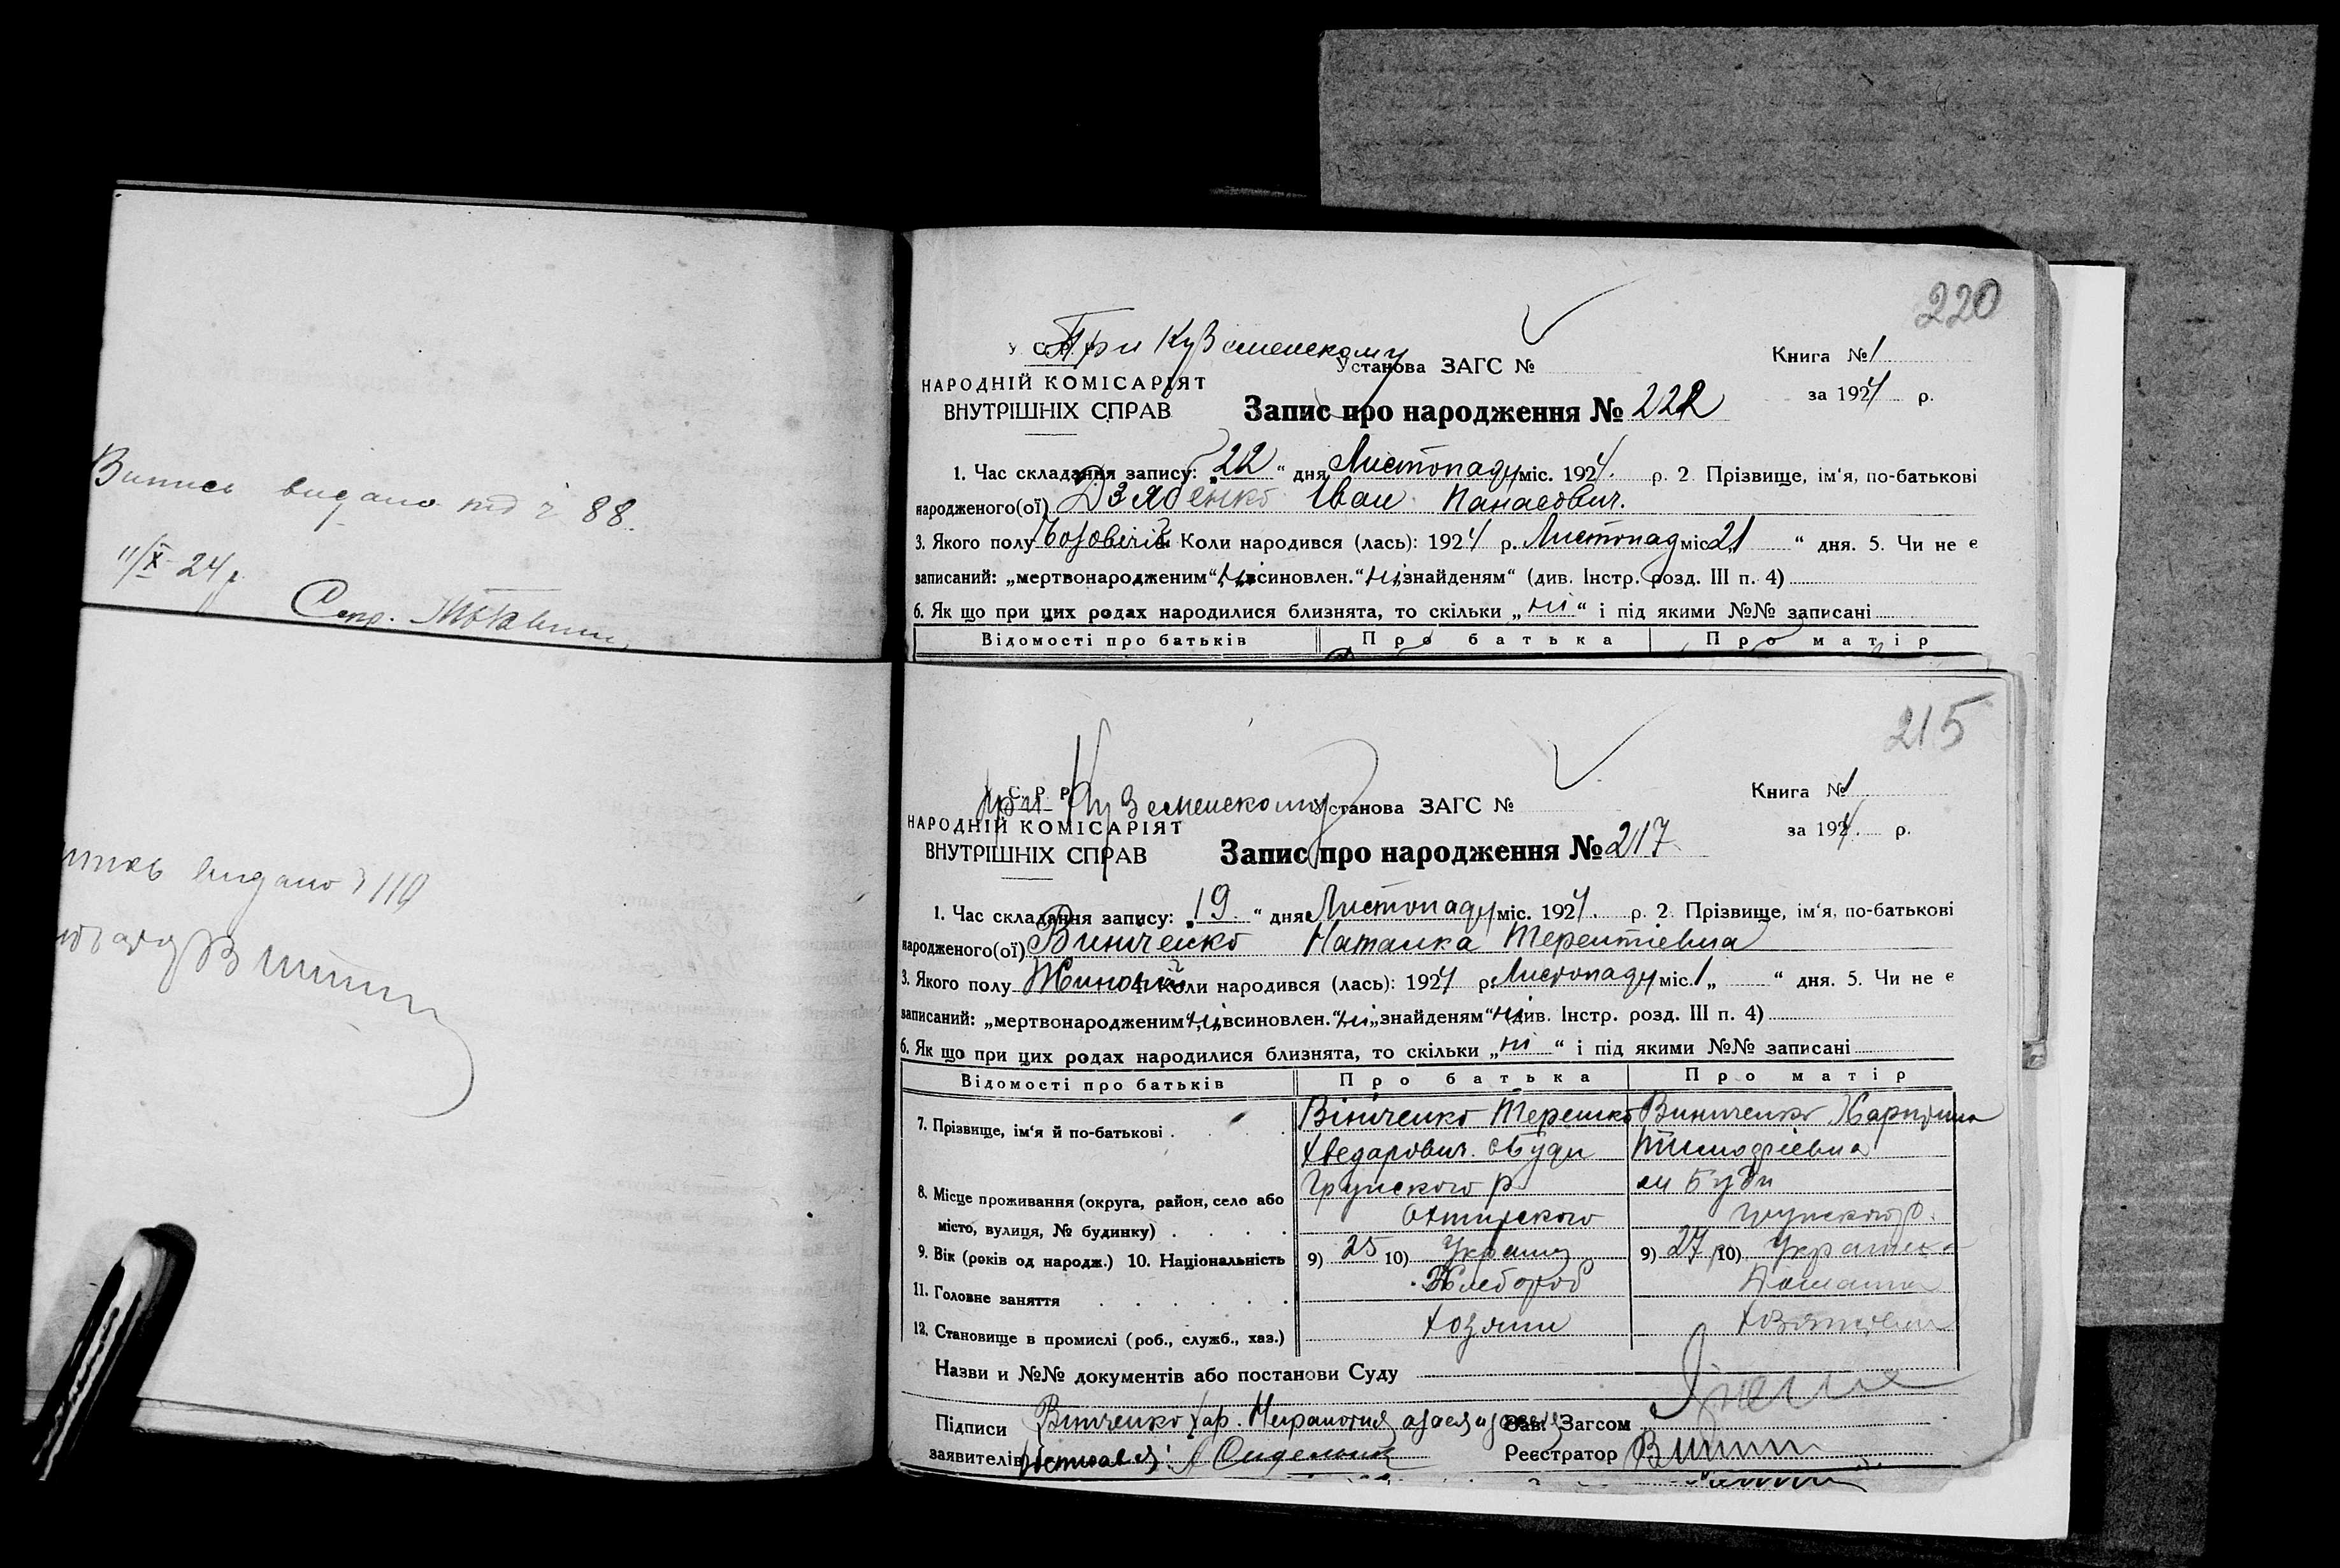 Випись видано під ч 88.
11/X 24 р
Секр.
видано з 119
220
При Куземенскому
Установа ЗАГС №
Книга № 1
НАРОДНІЙ КОМІСАРІЯТ
за 1924 р.
ВНУТРІШНІХ СПРАВ
Запис про народження № 222
1. Час складання запису: „22“ дня Листопаду міс. 1924. р. 2. Прізвище, ім‘я, по-батькові
народженого(ої) Дзябенко Іван Панасович.
3. Якого полу Коли народився (лась): 1924 р. Листопад міс. 21 “ дня. 5. Чи не є
записаний: „мертвонародженим“ ні „всиновлен.“ ні „знайденям“ (див. Інстр. розд. III п. 4)
6. Як що при цих родах народилися близнята, то скільки „ні“ і під якими №№ записані
Відомості про батьків Про батька Про матір
215
У. С. Р. Р.
при Куземенскому Установа ЗАГС №
Книга № 1
НАРОДНІЙ КОМІСАРІЯТ
за 1924. р.
ВНУТРІШНІХ СПРАВ
Запис про народження № 217
1. Час складання запису: „19.“ дня Листопаду міс. 1924. р. 2. Прізвище, ім‘я, по-батькові
народженого(ої) Винѝченко Наталка Терентіевна
3. Якого полу Жиночий 4. Коли народився (лась): 1924 р. Листопаду міс. 1 „ “ дня. 5. Чи не є
записаний: „мертвонародженим“ ні „всиновлен.“ ні „знайденям“ ні (див. Інстр. розд. III п. 4)
6. Як що при цих родах народилися близнята, то скільки „ні“ і під якими №№ записані
Відомості про батьків Про батька Про матір
7. Прізвище, ім‘я й по-батькові . Вініченко Терешко Виниченко Харитина
Хведарович. с Буди Тимофіевна
8. Місце проживання (округа, район, село або Грунского р. Буди
місто, вулиця, № будинку) . Охтирского Грунского р.
9. Вік (років од народж.) 10. Національність 9) 25 10) Украинц 9) 27 10) Украинка
11. Головне заняття Хлебороб Домашня
12. Становище в промислі (роб., служб., хаз.) Хозяин
Назви и №№ документів або постанови Суду
Підписи Вініченко Хар. Неграмотна Зав. Загсом
заявителів Реєстратор